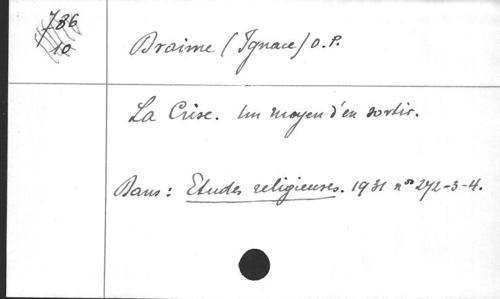 786
10
Braime (Ignace) O.P.
La Crise. Un moyen d'en sortir.
Dans : Etudes religieuses. 1931 nos 272-3-4.